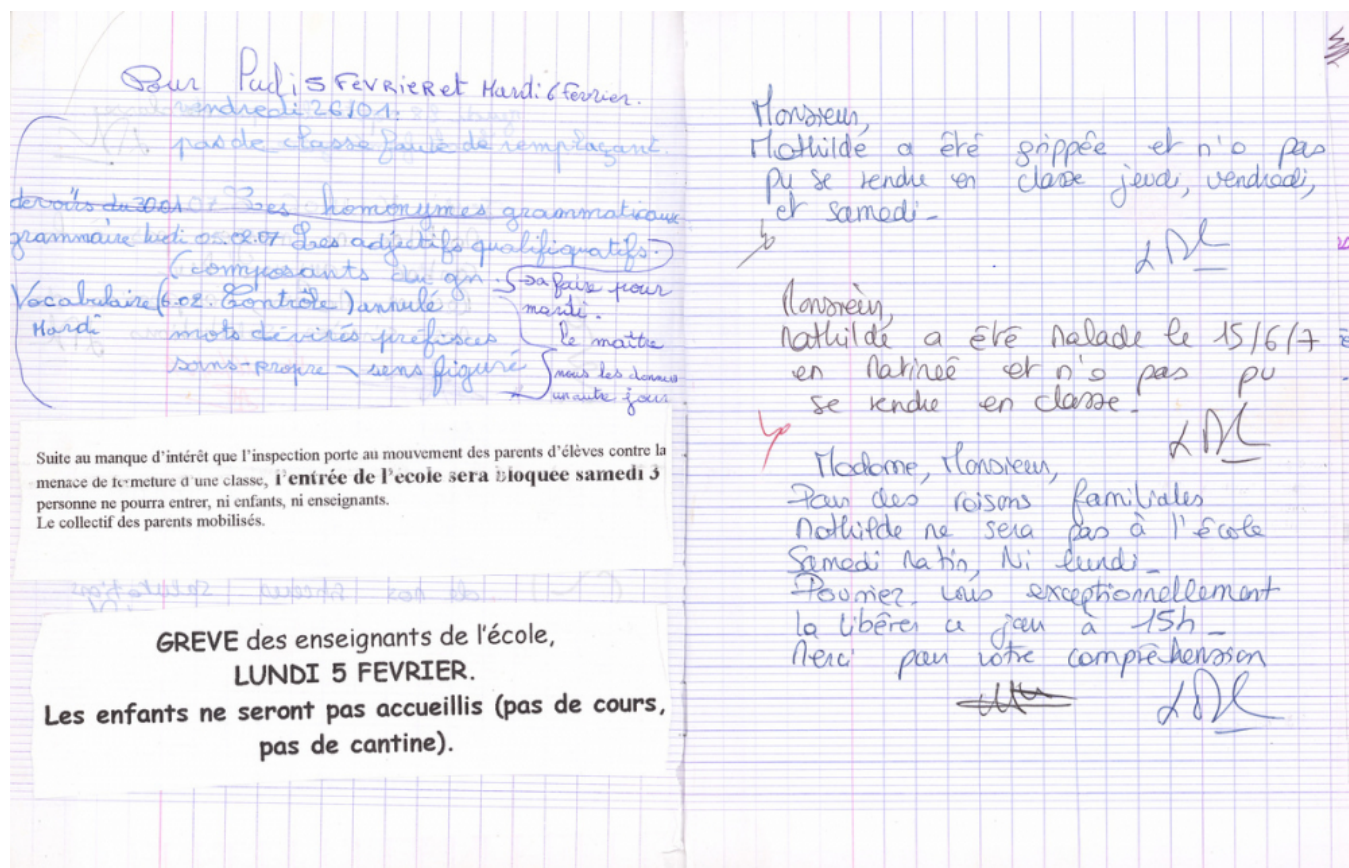 Pour Lundi 5 FEVRIER et Mardi 6 février.
vendredi 26/01:
pas de classe faute de remplaçant.
devoirs du 30.01.07 Les homonymes grammaticaux
grammaire lundi 05.02.07 Les adjectifs qualifiquatifs.
(composants du gn.
Vocabulaire (6.02. Contrôle) annulé
Mardi mots dévirés préfixces
sens-propre sens figuré
→ a faire pour
mardi.
le maître
nous les donnes
un autre jour
Suite au manque d'intérêt que l'inspection porte au mouvement des parents d'élèves contre la
menace de fermeture d'une classe, l'entrée de l'école sera bloquee samedi 3
personne ne pourra entrer, ni enfants, ni enseignants.
Le collectif des parents mobilisés.
GREVE des enseignants de l'école,
LUNDI 5 FEVRIER.
Les enfants ne seront pas accueillis (pas de cours,
pas de cantine).
Monsieur,
Mathilde a été grippée et n'a pas
pu se rendre en classe jeudi, vendredi,
et samedi -
Monsieur,
Mathilde a été Malade le 15/6/7
en Matinée et n'a pas pu
se rendre en classe -
Madame, Monsieur,
Pour des raisons familiales
Mathilde ne sera pas à l'école
Samedi Matin, Ni lundi -
Pourriez vous exceptionnellement
la libérer ce jour à 15h -
Merci pour votre compréhension